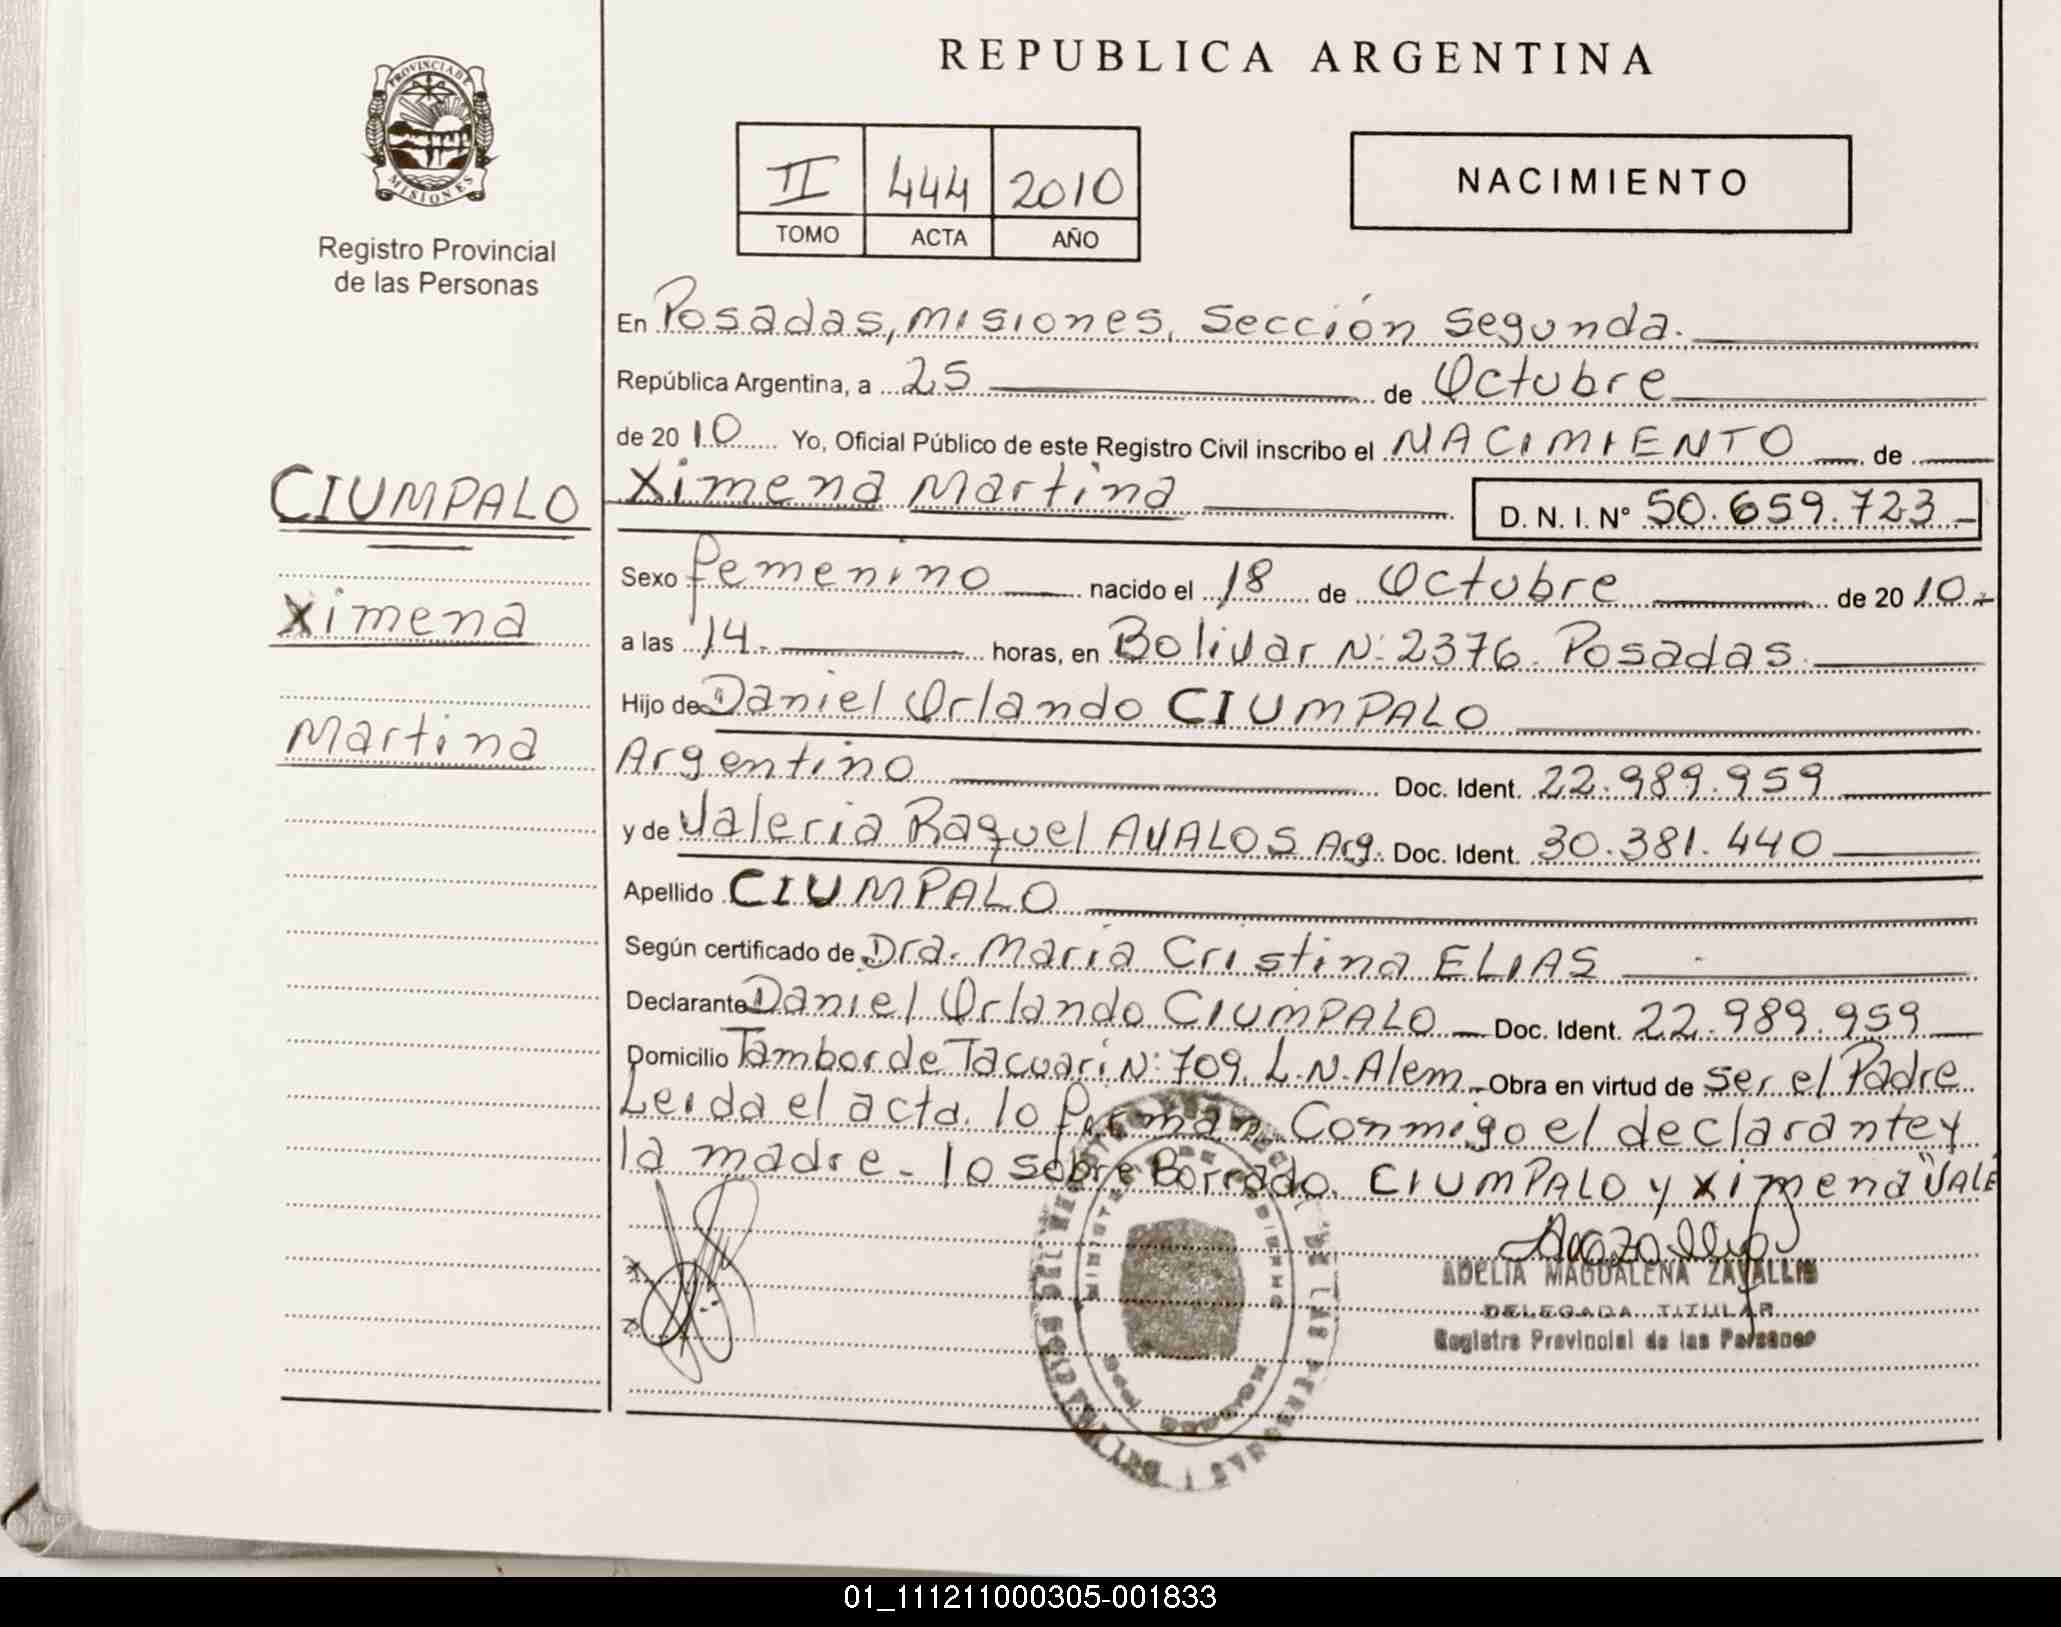 PROVINCIA DE
MISIONES
Registro Provincial
de las Personas
REPUBLICA ARGENTINA
II 444 2010
TOMO ACTA AÑO
NACIMIENTO
En Posadas, Misiones, Sección Segunda.
República Argentina, a 25 de Octubre
de 20 10 Yo, Oficial Público de este Registro Civil inscribo el NACIMIENTO de
CIUMPALO
Ximena Martina D. N. I. Nº 50.659.723
Sexo femenino nacido el 18 de Octubre de 20 10.
Ximena
a las 14. horas, en Bolivar N: 2376. Posadas.
Hijo de Daniel Orlando CIUMPALO
Martina
Argentino Doc. Ident. 22.989.959
y de Valeria Raquel AVALOS Arg. Doc. Ident. 30.381.440
Apellido CIUMPALO
Según certificado de Dra. Maria Cristina ELIAS
Declarante Daniel Orlando CIUMPALO Doc. Ident. 22.989.959
Domicilio Tambor de Tacuarí N: 709. L.N. Alem. Obra en virtud de ser el Padre
Leida el acta. lo firman Conmigo el declarante y
la madre - lo sobre Borrado. CIUMPALO y Ximena "VALE
ADELIA MAGDALENA ZAVALLIS
DELEGADA TITULAR
Registro Provincial de las Personas
01_111211000305-001833